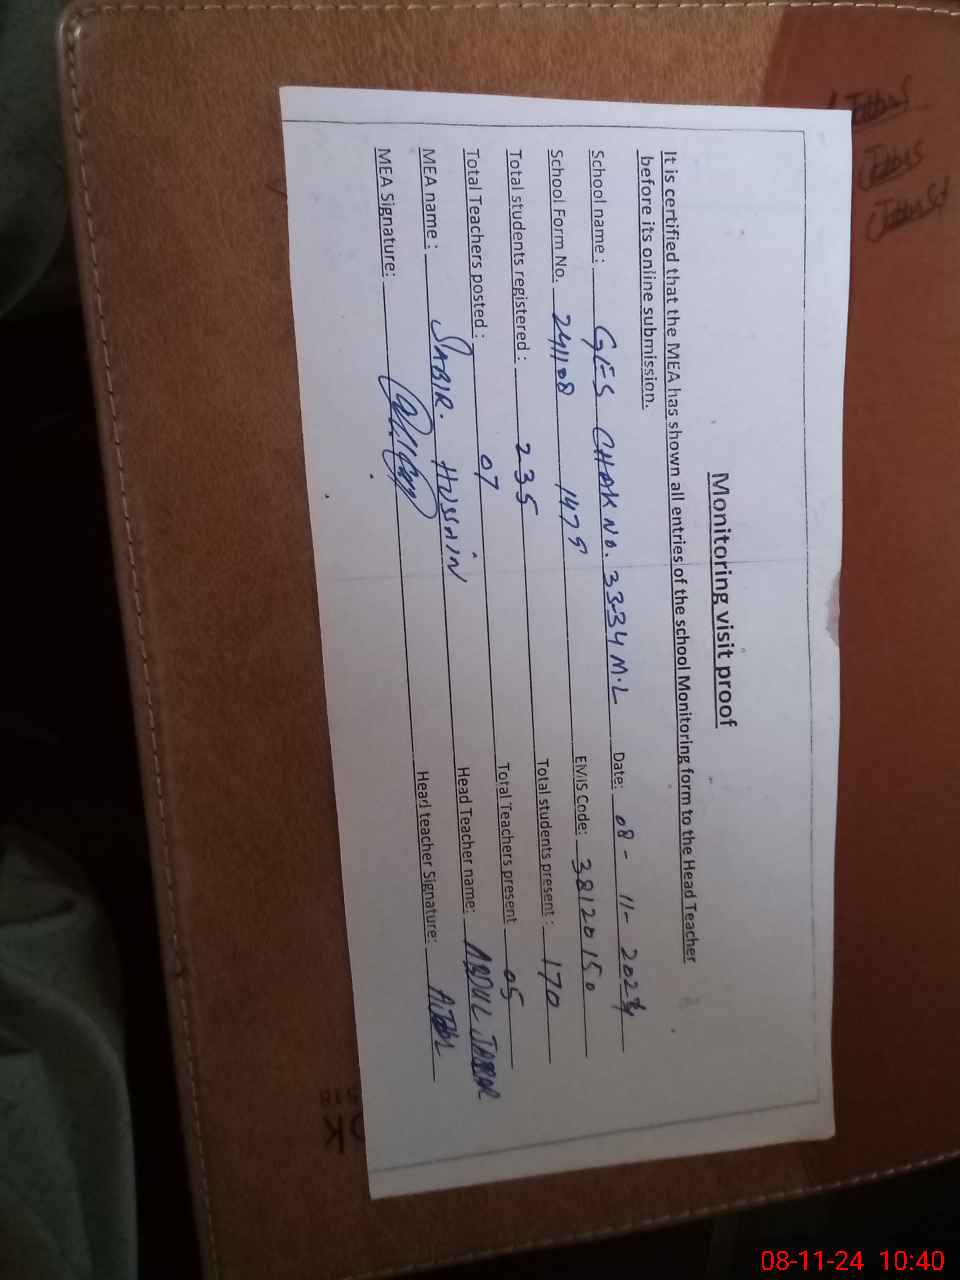 Monitoring visit proof
It is certified that the MEA has shown all entries of the school Monitoring form to the Head Teacher
before its online submission.
School name : GES CHAK NO. 33-34 M.L Date: 08-11-2024
School Form No. 241108 1475 EMIS Code: 38120150
Total students registered : 235 Total students present : 170
Total Teachers posted : 07 Total Teachers present 05
MEA name : SABIR HUSSAIN Head Teacher name: ABDUL JABBAR
MEA Signature: Head teacher Signature:
OK
08-11-24 10:40